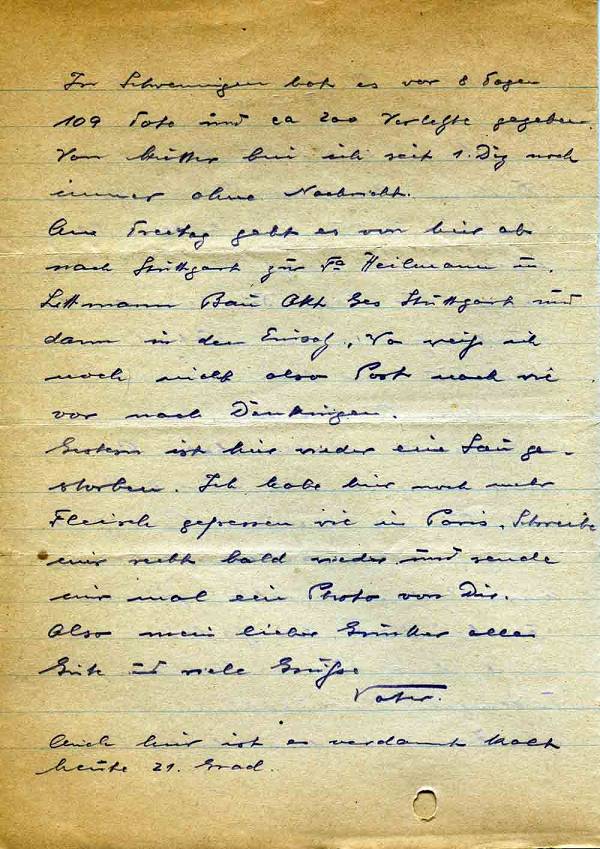 In Schwenningen hat es vor 8 Tagen
109 Tote und ca 200 Verletzte gegeben.
Von Mutter bin ich seit 1. Dez noch
immer ohne Nachricht.
Am Freitag geht es von hier ab
nach Stuttgart zur Fa Heilmann u.
Littmann Bau Akt Ges Stuttgart und
dann in den Einsatz, Wo weiß ich
noch nicht also Post nach wie
vor nach Denkingen.
Gestern ist hier wieder eine Sau ge-
storben. Ich habe hier noch mehr
Fleisch gefressen wie in Paris. Schreibe
mir recht bald wieder und sende
mir mal ein Photo von Dir.
Also mein lieber Günther alles
Gute und viele Grüße
Vater.
Auch hier ist es verdammt kalt
heute 21. Grad.